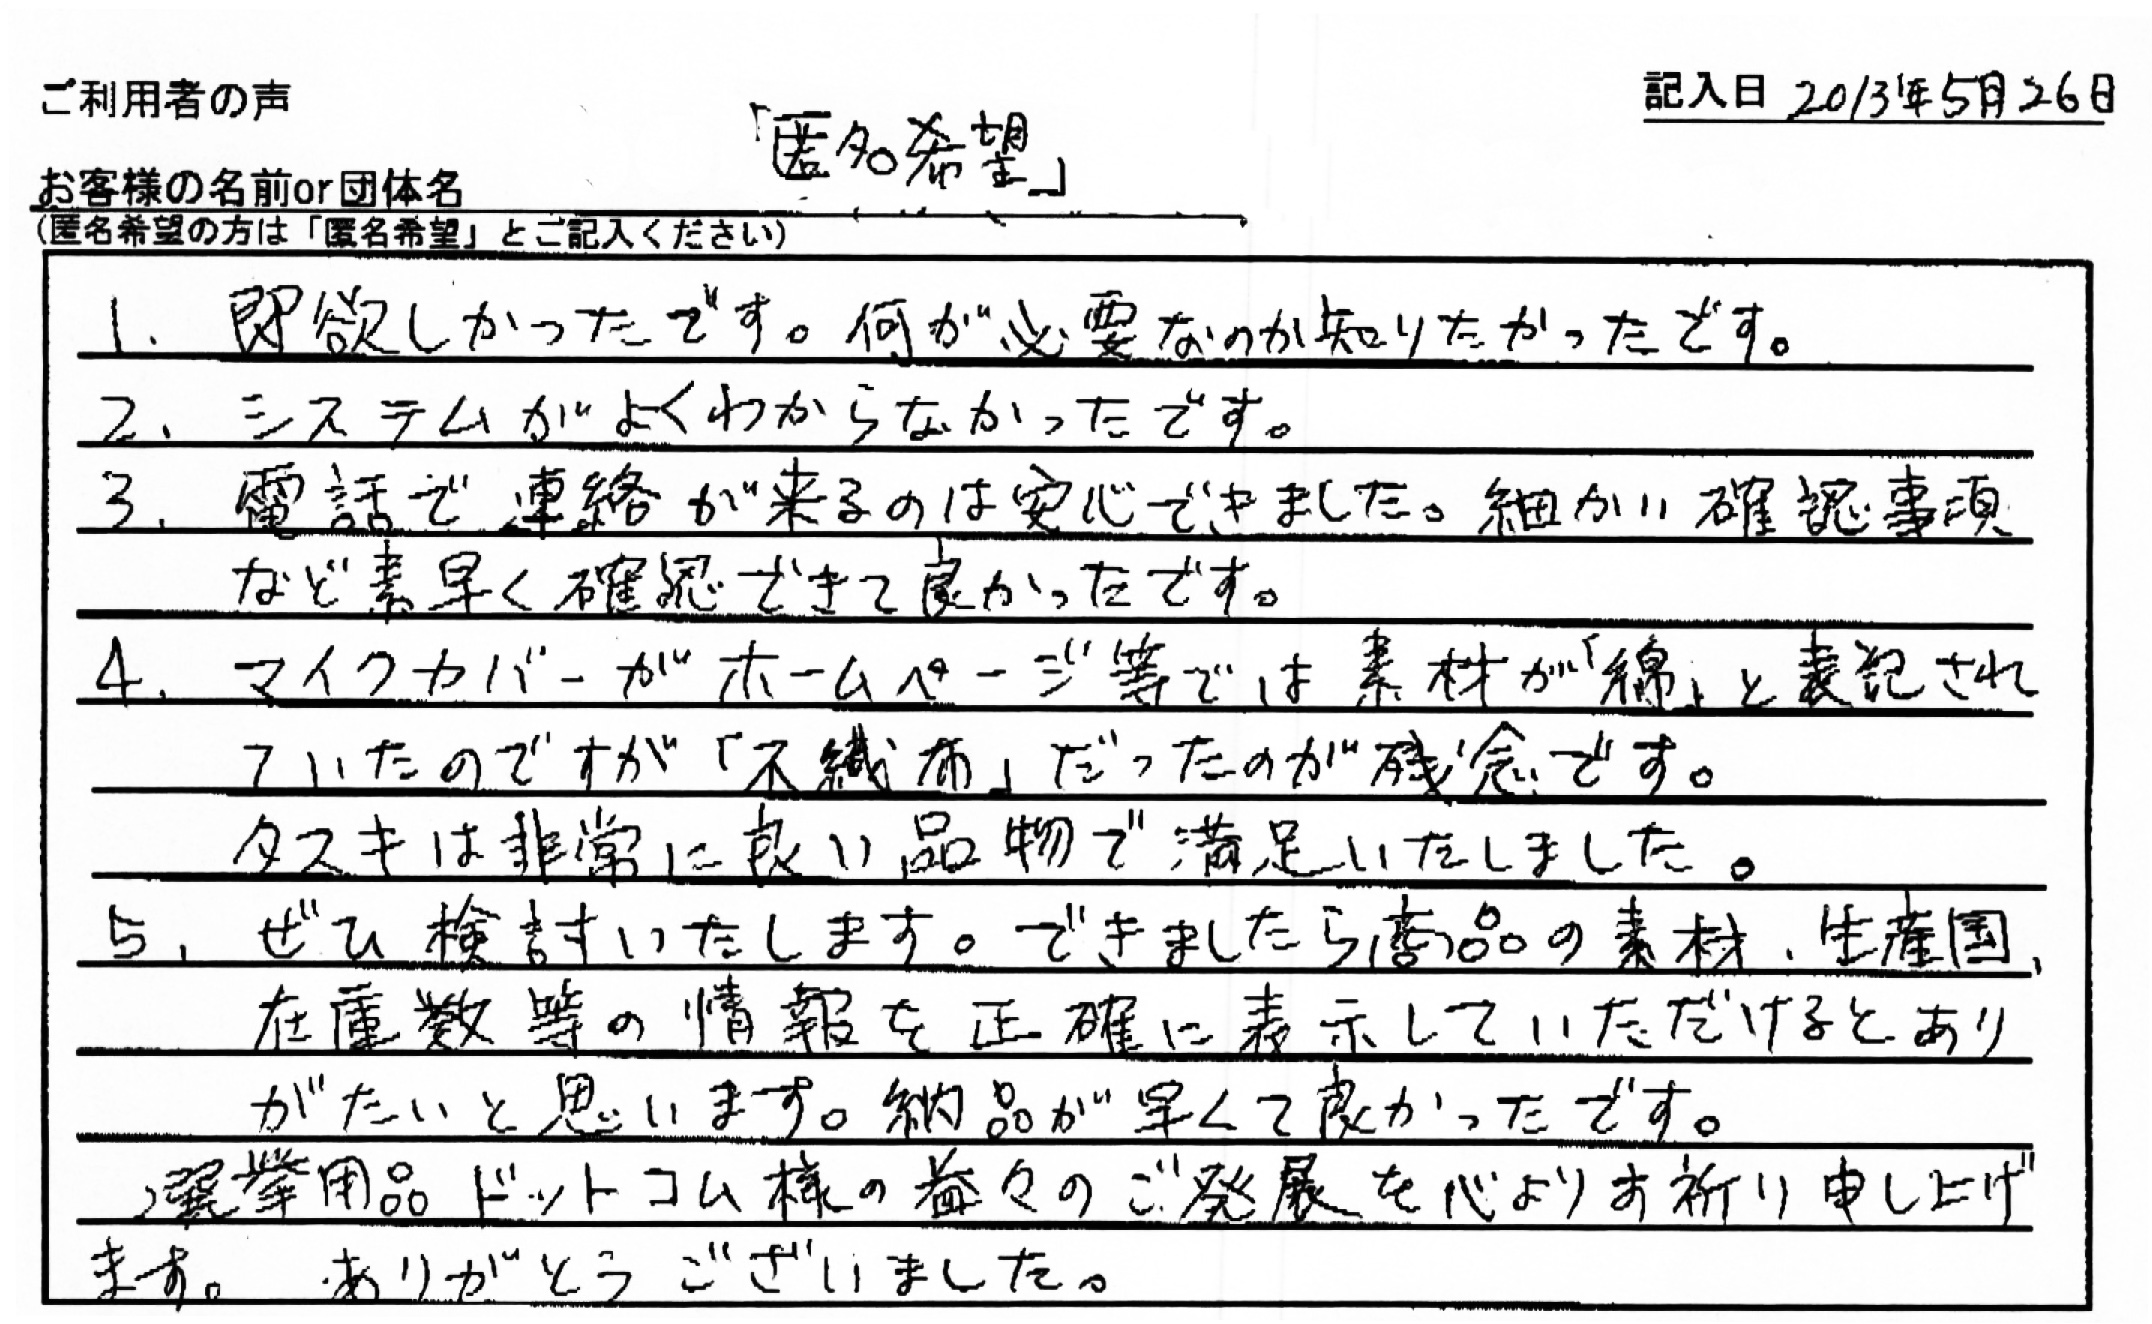 ご利用者の声
記入日 2013年5月26日
「匿名希望」
お客様の名前or団体名
(匿名希望の方は「匿名希望」とご記入ください)
1. 即欲しかったです。何が必要なのか知りたかったです。
2. システムがよくわからなかったです。
3. 電話で連絡が来るのは安心できました。細かい確認事項
など素早く確認できて良かったです。
4. マイクカバーがホームページ等では素材が「綿」と表記され
ていたのですが「不織布」だったのが残念です。
タスキは非常に良い品物で満足いたしました。
5. ぜひ検討いたします。できましたら商品の素材、生産国、
在庫数等の情報を正確に表示していただけるとあり
がたいと思います。納品が早くて良かったです。
選挙用品ドットコム様の益々のご発展を心よりお祈り申し上げ
ます。 ありがとうございました。